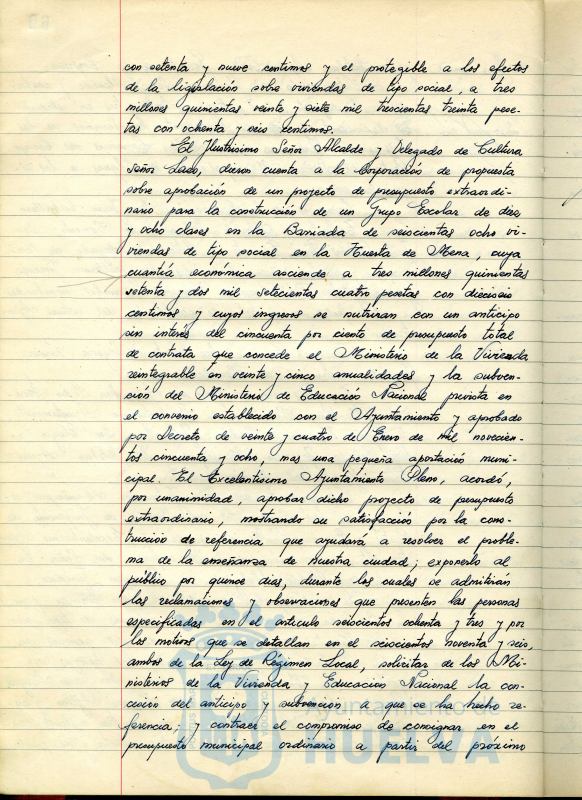 con setenta y nueve centimos y el protegible a los efectos
de la ligislación sobre viviendas de tipo social, a tres
millones quinientas veinte y siete mil trescientas treinta pese-
tas con ochenta y seis centimos.
El Ilustrisimo Señor Alcalde y Delegado de Cultura
Señor Lado, dieron cuenta a la Corporación de propuesta
sobre aprobación de un proyecto de presupuesto extraordi-
nario para la construcción de un Grupo Escolar de diez
y ocho clases en la Barriada de seiscientas ocho vi-
viendas de tipo social en la Huerta de Mena, cuya
cuantía económica asciende a tres millones quinientas
setenta y dos mil setecientas cuatro pesetas con dieciseis
centimos y cuyos ingresos se nutriran con un anticipo
sin interés del cincuenta por ciento de presupuesto total
de contrata que concede el Ministerio de la Vivienda
reintegrable en veinte y cinco anualidades y la subven-
ción del Ministerio de Educación Nacional prevista en
el convenio establecido con el Ayuntamiento y aprobado
por Decreto de veinte y cuatro de Enero de mil novecien-
tos cincuenta y ocho, mas una pequeña aportación muni-
cipal. El Excelentisimo Ayuntamiento Pleno, acordó,
por unanimidad, aprobar dicho proyecto de presupuesto
extraordinario, mostrando su satisfacción por la cons-
trucción de referencia que ayudará a resolver el proble-
ma de la enseñanza de nuestra ciudad; exponerlo al
público por quince dias, durante los cuales se admitirán
las reclamaciones y observaciones que presenten las personas
especificadas en el articulo seiscientos ochenta y tres y por
los motivos que se detallan en el seiscientos noventa y seis,
ambos de la Ley de Régimen Local, solicitar de los Mi-
nisterios de la Vivienda y Educación Nacional la con-
cesión del anticipo y subvención a que se ha hecho re-
ferencia; y contraer el compromiso de consignar en el
presupuesto municipal ordinario a partir del próximo
Ayuntamiento de
HUELVA